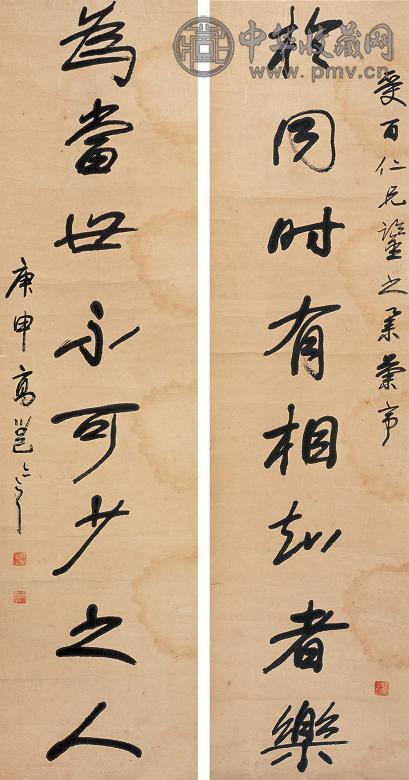 中华收藏网
www.pmv.cn
百仁兄鑒之
於同时有相知者樂
為當世不可少之人
庚申高邕